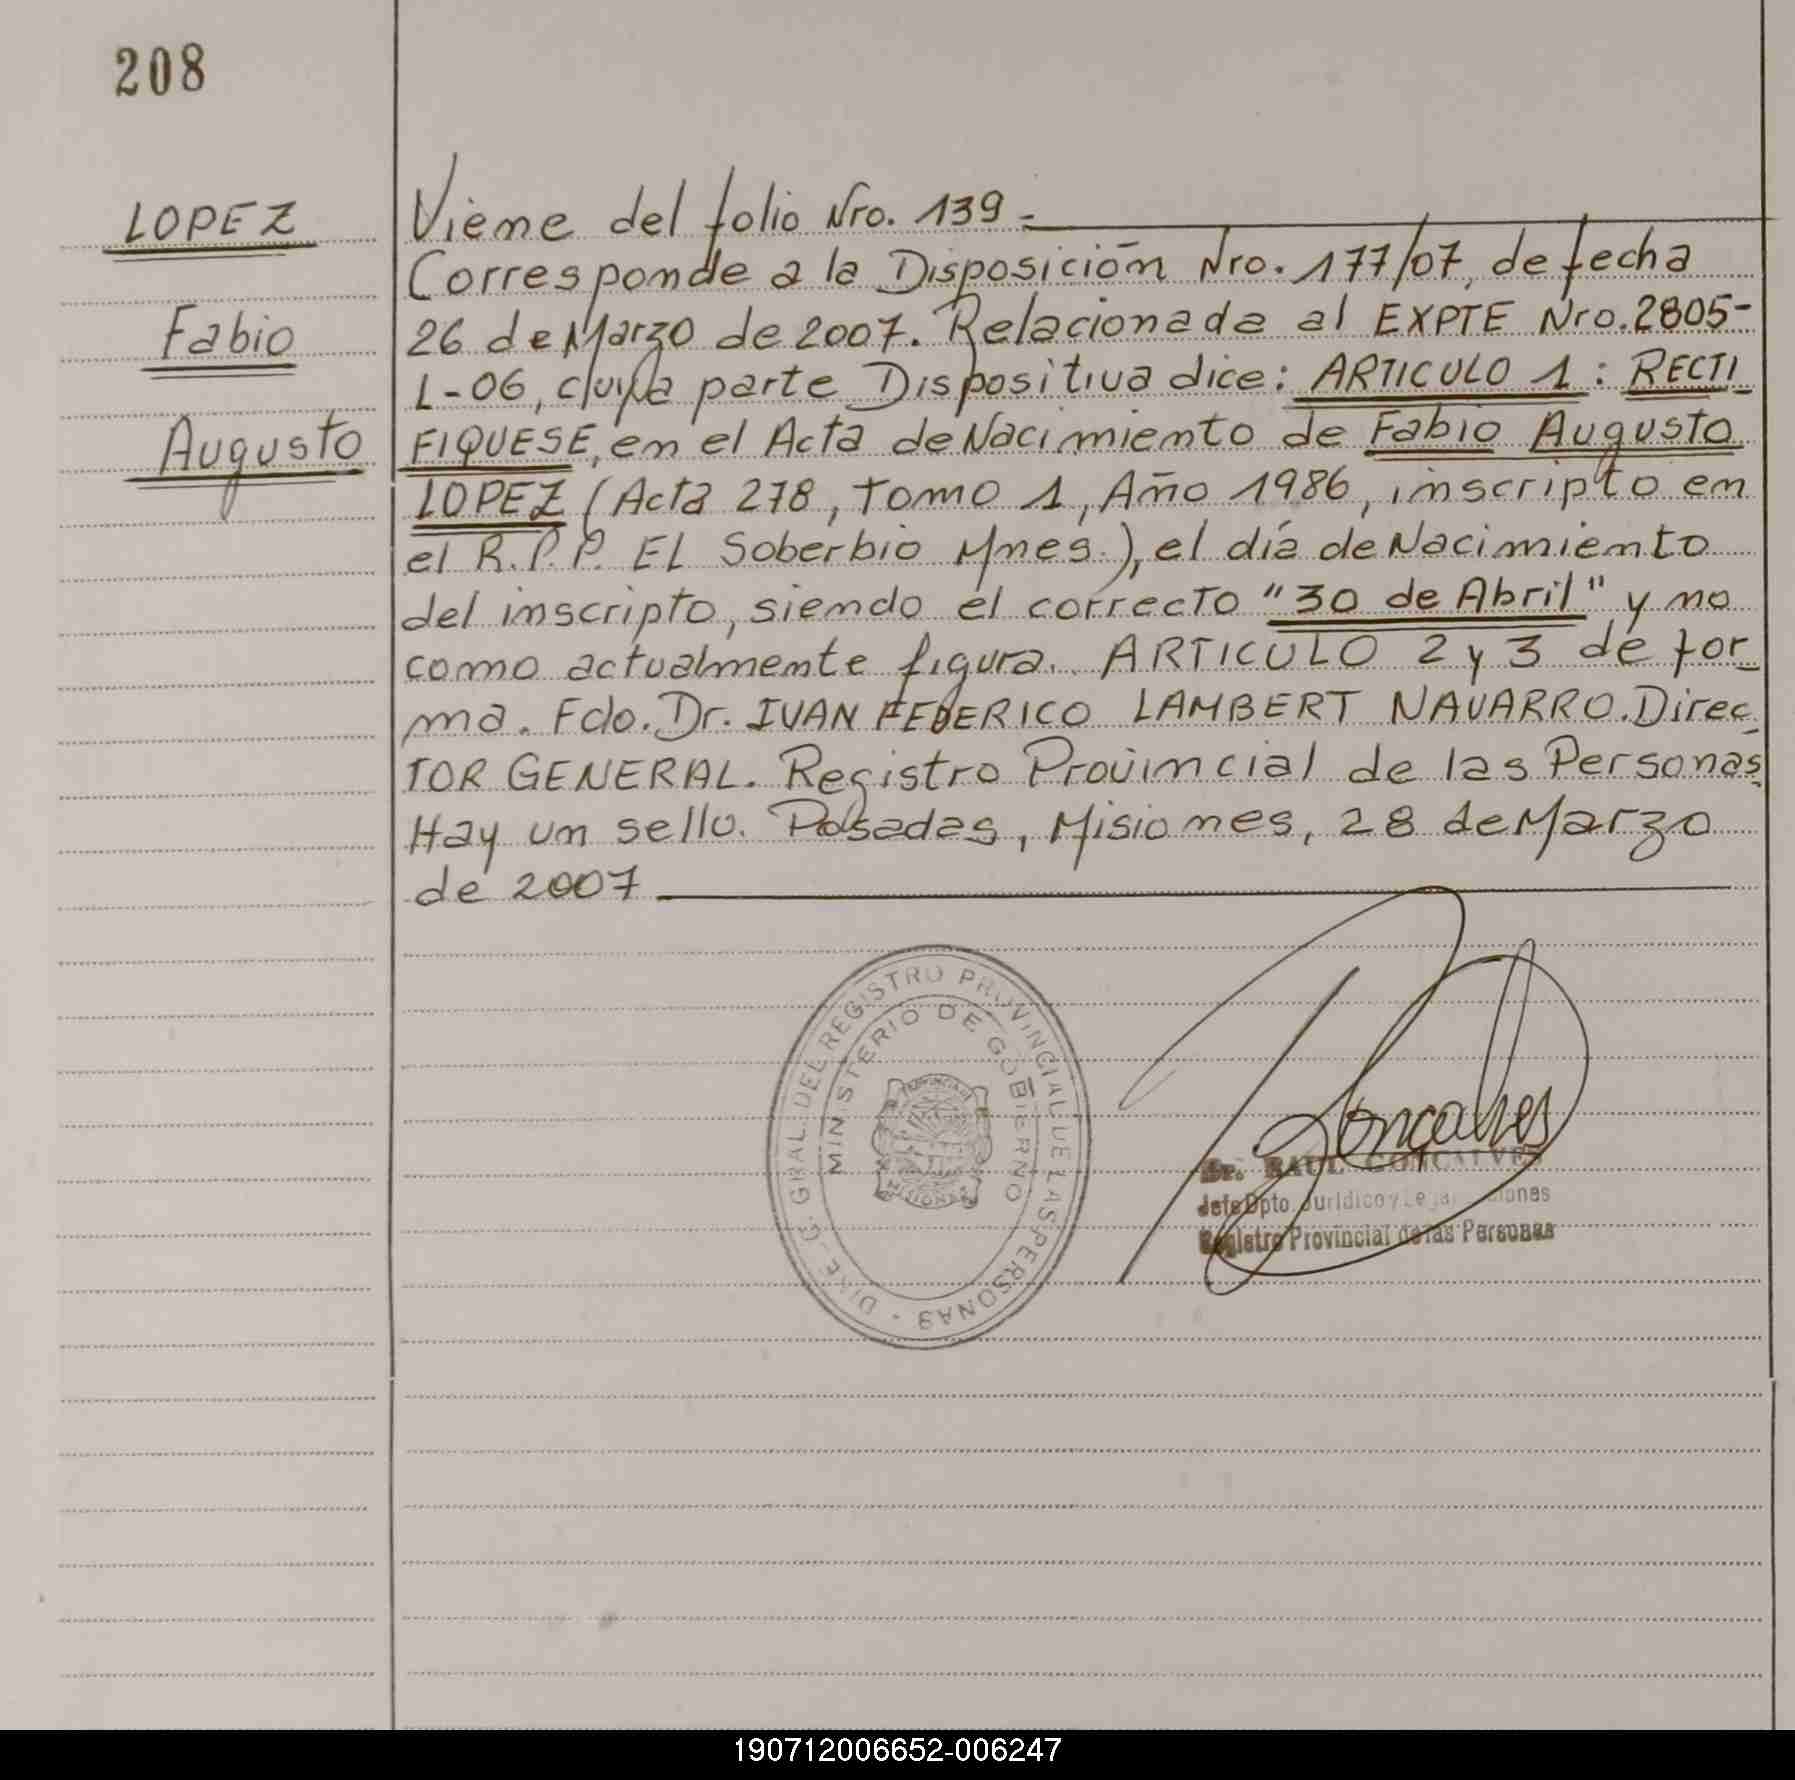 208
LOPEZ
Fabio
Augusto
Viene del folio Nro. 139.-
Corresponde a la Disposición Nro. 177/07, de fecha
26 de Marzo de 2007. Relacionada al EXPTE Nro. 2805-
L-06, cuya parte Dispositiva dice: ARTICULO 1: RECTI_
FIQUESE, en el Acta de Nacimiento de Fabio Augusto
LOPEZ (Acta 278, Tomo 1, Año 1986, inscripto en
el R.P.P. EL Soberbio Mnes.), el día de Nacimiento
del inscripto, siendo el correcto "30 de Abril" y no
como actualmente figura. ARTICULO 2 y 3 de for_
ma. Fdo. Dr. IVAN FEDERICO LAMBERT NAVARRO. Direc_
TOR GENERAL. Registro Provincial de las Personas.
Hay un sello. Posadas, Misiones, 28 de Marzo
de 2007
DIREC. GRAL. DEL REGISTRO PROVINCIAL DE LAS PERSONAS -
MINISTERIO DE GOBIERNO
PROVINCIA
MISIONES
Goncalves
Dr. RAUL GONCALVES
Jefe Dpto. Jurídico y
Registro Provincial de las Personas
190712006652-006247